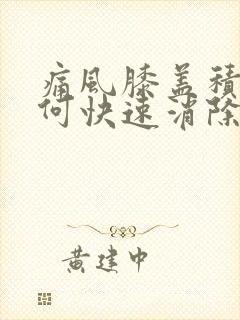 痛風膝盖積
何快速消除
黄建中